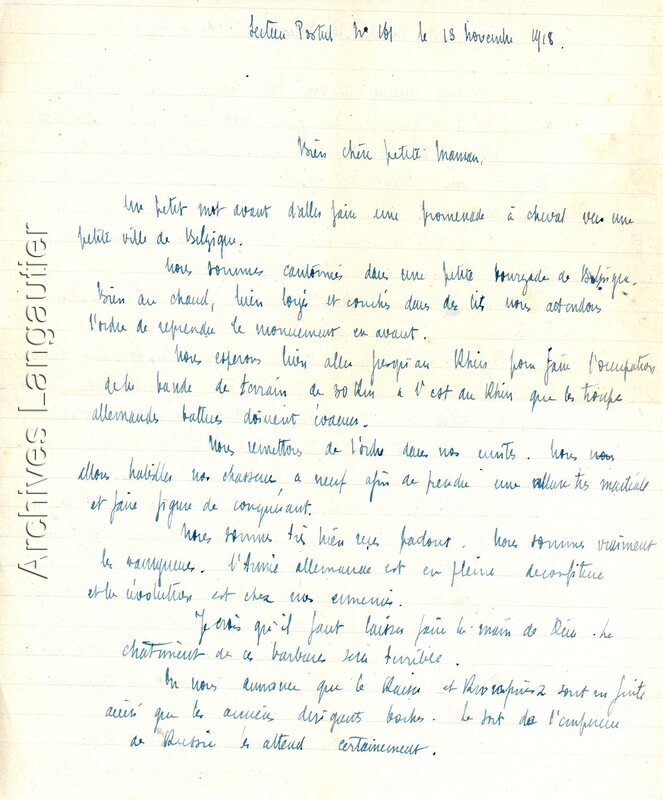 Secteur Postal N° 161 le 13 Novembre 1918.
Bien chère petite Maman,
Un petit mot avant d'aller faire une promenade à cheval vers une
petite ville de Belgique.
Nous sommes cantonnés dans une petite bourgade de Belgique.
Bien au chaud, bien logés et couchés dans des lits nous attendons
l'ordre de reprendre le mouvement en avant.
Nous espérons bien aller jusqu'au Rhin pour faire l'occupation
de la bande de terrain de 30 Km à l'est du Rhin que les troupes
allemandes battues doivent évacuer.
Nous remettons de l'ordre dans nos unités. Nous
allons habiller nos chasseurs à neuf afin de prendre une allure très martiale
et faire figure de conquérant.
Nous sommes très bien reçus partout. Nous sommes vraiment
les vainqueurs. L'Armée allemande est en pleine déconfiture
et la révolution est chez nos ennemis.
Je crois qu'il faut laisser faire la main de Dieu. Le
châtiment de ces barbares sera terrible.
On nous annonce que le Kaiser et Kronprinz sont en fuite
ainsi que les anciens dirigeants boches. Le sort de l'empereur
de Russie les attend certainement.
Archives Langautier